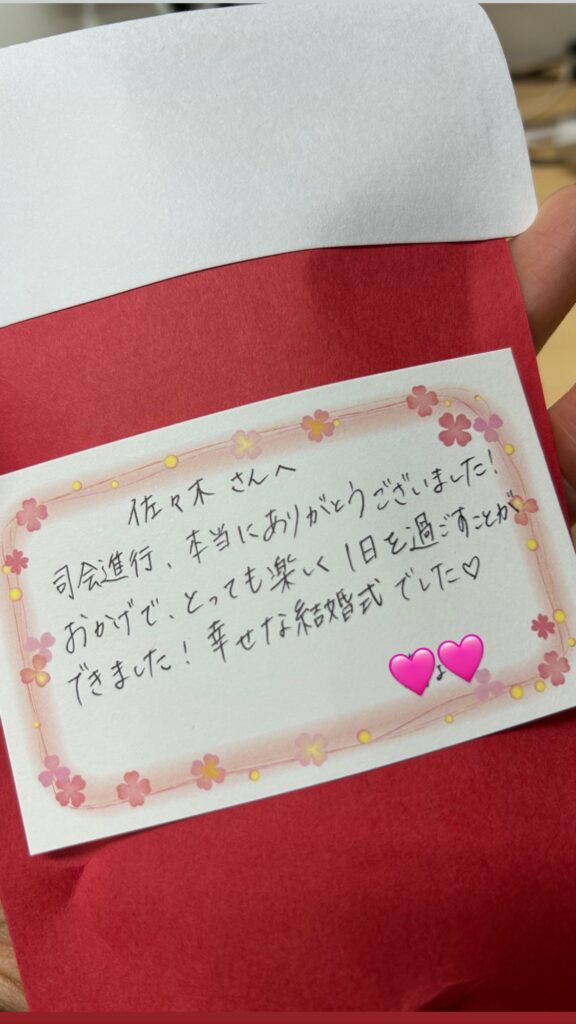 佐々木 さんへ
司会進行、本当にありがとうございました!
おかげで、とっても楽しく1日を過ごすことが
できました!幸せな結婚式でした♡